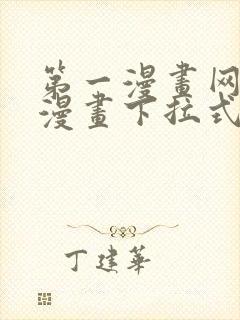 第一漫畫网
漫畫下拉式
丁建華